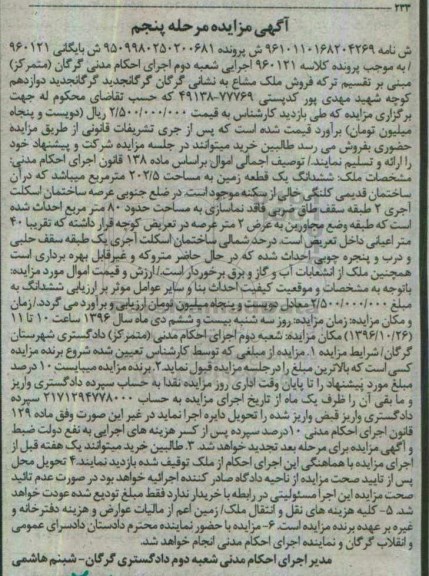 ۲۳۳
آگهی مزایده مرحله پنجم
ش نامه ۹۶۱۰۱۱۰۱۶۸۲۰۴۲۶۹ ش پرونده ۹۵۰۹۹۸۰۲۵۰۲۰۰۶۸۱ ش بایگانی ۹۶۰۱۲۱
/ به موجب پرونده کلاسه ۹۶۰۱۲۱ اجرایی شعبه دوم اجرای احکام مدنی گرگان (متمرکز)
مبنی بر تقسیم ترکه فروش ملک مشاع به نشانی گرگان گرگانجدید گرگانجدید دوازدهم
کوچه شهید مهدی پور کدپستی ۷۷۷۶۹-۴۹۱۳۸ که حسب تقاضای محکوم له جهت
برگزاری مزایده که طی بازدید کارشناس به قیمت ۲/۵۰۰/۰۰۰/۰۰۰ ریال (دویست و پنجاه
میلیون تومان) برآورد قیمت شده است که پس از جری تشریفات قانونی از طریق مزایده
حضوری بفروش می رسد طالبین خرید میتوانند در جلسه مزایده شرکت و پیشنهاد خود
را ارائه و تسلیم نمایند./ توصیف اجمالی اموال براساس ماده ۱۳۸ قانون اجرای احکام مدنی:
مشخصات ملک: ششدانگ یک قطعه زمین به مساحت ۲۰۲/۵ مترمربع میباشد که درآن
ساختمان قدیمی کلنگی خالی از سکنه موجود است. در ضلع جنوبی عرصه ساختمان اسکلت
آجری ۲ طبقه سقف طاق ضربی فاقد نماسازی به مساحت حدود ۸۰ متر مربع احداث شده
است که طبقه وضع مجاورین به عرض ۲ متر عرصه در تعریض کوچه قرار داشته که تقریبا ۴۰
متر اعیانی داخل تعریض است. درحد شمالی ساختمان اسکلت آجری یک طبقه سقف حلبی
و درب و پنجره چوبی احداث شده که در حال حاضر متروکه و غیرقابل بهره برداری است
همچنین ملک از انشعابات آب و گاز و برق برخوردار است./ ارزش و قیمت اموال مورد مزایده:
باتوجه به مشخصات و موقعیت کیفیت احداث بنا و سایر عوامل موثر بر ارزیابی ششدانگ به
مبلغ ۲/۵۰۰/۰۰۰/۰۰۰ معادل دویست و پنجاه میلیون تومان ارزیابی و برآورد می گردد./ زمان
و مکان مزایده: زمان مزایده: روز سه شنبه بیست و ششم دی ماه سال ۱۳۹۶ ساعت ۱۰ تا ۱۱
(۱۳۹۶/۱۰/۲۶) مکان مزایده: شعبه دوم اجرای احکام مدنی (متمرکز) دادگستری شهرستان
گرگان/ شرایط مزایده ۱. مزایده از مبلغی که توسط کارشناس تعیین شده شروع برنده مزایده
کسی است که بالاترین مبلغ را درجلسه مزایده قبول نماید ۲. برنده مزایده میبایست ۱۰ درصد
مبلغ مورد پیشنهاد را تا پایان وقت اداری روز مزایده نقدا به حساب سپرده دادگستری واریز
و ما بقی آن را ظرف یک ماه از تاریخ اجرای مزایده به حساب ۲۱۷۱۲۹۴۷۷۸۰۰۰ سپرده
دادگستری واریز قبض واریز شده را تحویل دایره اجرا نماید در غیر این صورت وفق ماده ۱۲۹
قانون اجرای احکام مدنی ۱۰ درصد سپرده پس از کسر هزینه های اجرایی به نفع دولت ضبط
و آگهی مزایده برای مرحله بعد تجدید خواهد شد. ۳. طالبین خرید میتوانند یک هفته قبل از
اجرای مزایده با هماهنگی این اجرای احکام از ملک توقیف شده بازدید نمایند. ۴ تحویل محل
پس از تایید صحت مزایده از ناحیه دادگاه صادر کننده اجرائیه خواهد بود در صورت عدم تائید
صحت مزایده این اجرا مسئولیتی در رابطه با خریدار ندارد فقط مبلغ تودیع شده عودت خواهد
شد. ۵- کلیه هزینه های نقل و انتقال ملک/ زمین اعم از مالیات عوارض و هزینه دفترخانه و
غیره بر عهده برنده مزایده است. ۶- مزایده با حضور نماینده محترم دادستان دادسرای عمومی
و انقلاب گرگان و نماینده اجرای احکام مدنی انجام خواهد شد.
مدیر اجرای احکام مدنی شعبه دوم دادگستری گرگان- شبنم هاشمی